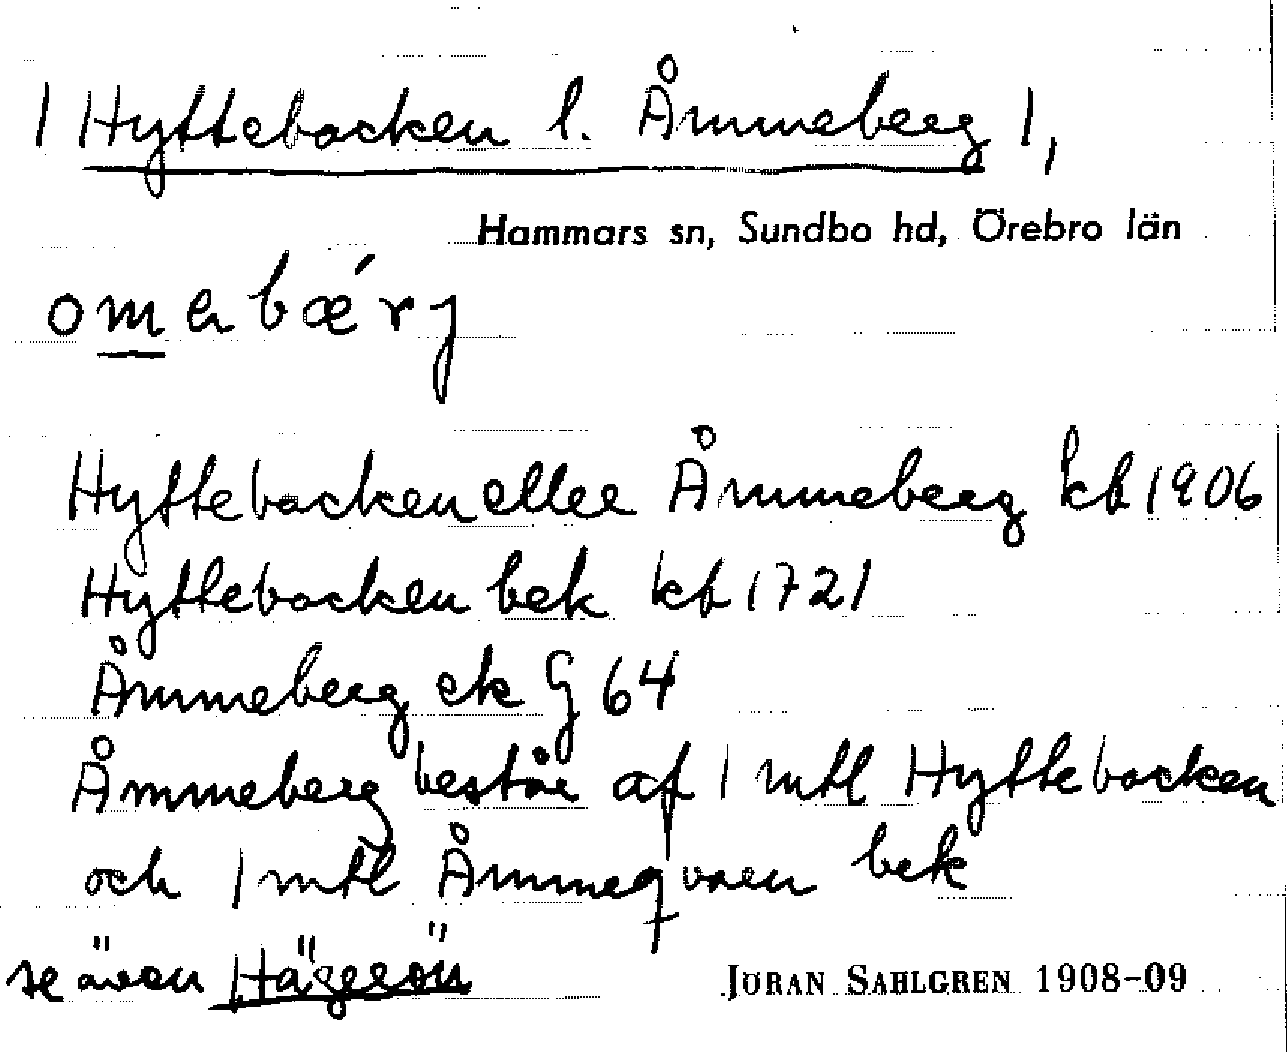 | Hyttebacken l. Åmmeberg |,
Hammars sn, Sundbo hd, Örebro län
omabǽrj
Hyttebacken eller Åmmeberg kb 1906
Hyttebacken bek kb 1721
Åmmeberg ek G 64
Åmmeberg består af 1 mtl Hyttebacken
och 1 mtl Åmmeqvarn bek
se även Hägerön
JÖRAN SAHLGREN 1908-09